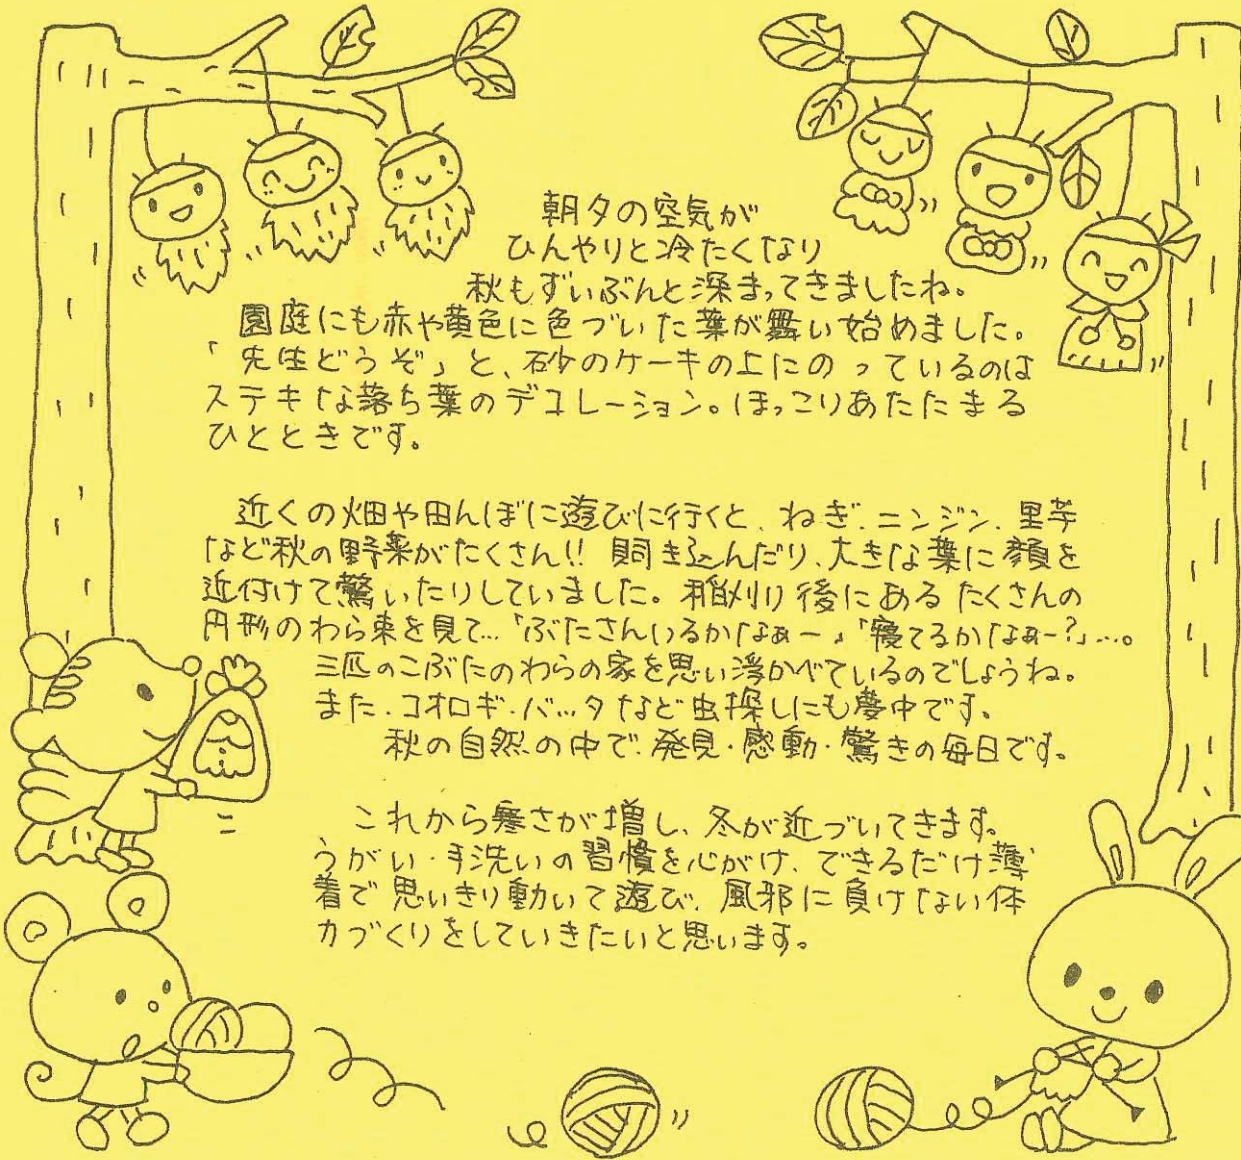 朝夕の空気が
ひんやりと冷たくなり
秋もずいぶんと深まってきましたね。
園庭にも赤や黄色に色づいた葉が舞い始めました。
「先生どうぞ」と、砂のケーキの上にのっているのは
ステキな落ち葉のデコレーション。ほっこりあたたまる
ひとときです。
近くの畑や田んぼに遊びに行くと、ねぎ、ニンジン、里芋
など秋の野菜がたくさん!! 覗き込んだり、大きな葉に顔を
近付けて驚いたりしていました。稲刈り後にあるたくさんの
円形のわら束を見て…「ぶたさんいるかなぁー」「寝てるかなぁー?」…。
三匹のこぶたのわらの家を思い浮かべているのでしょうね。
また、コオロギ・バッタなど虫探しにも夢中です。
秋の自然の中で、発見・感動・驚きの毎日です。
これから寒さが増し、冬が近づいてきます。
うがい・手洗いの習慣を心がけ、できるだけ薄
着で思いきり動いて遊び、風邪に負けない体
力づくりをしていきたいと思います。